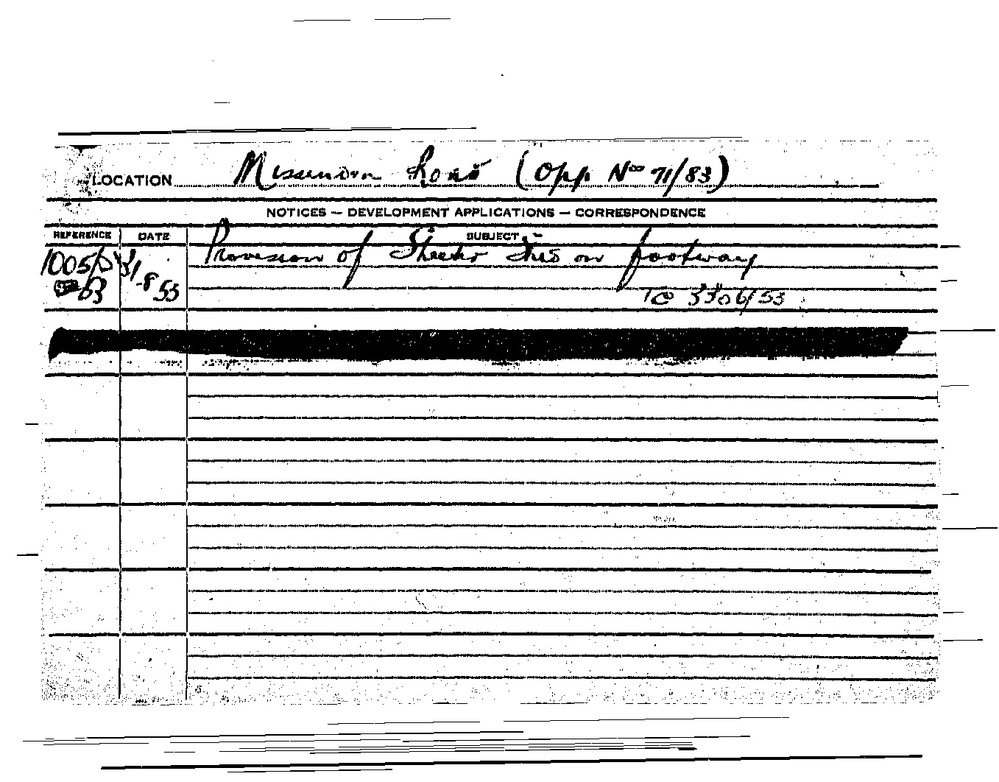 LOCATION Missenden Road (Opp Nos 71/83)
NOTICES — DEVELOPMENT APPLICATIONS — CORRESPONDENCE
REFERENCE DATE SUBJECT
1005/ 31 Provision of on footway
53 -8 53 TC 3306/53